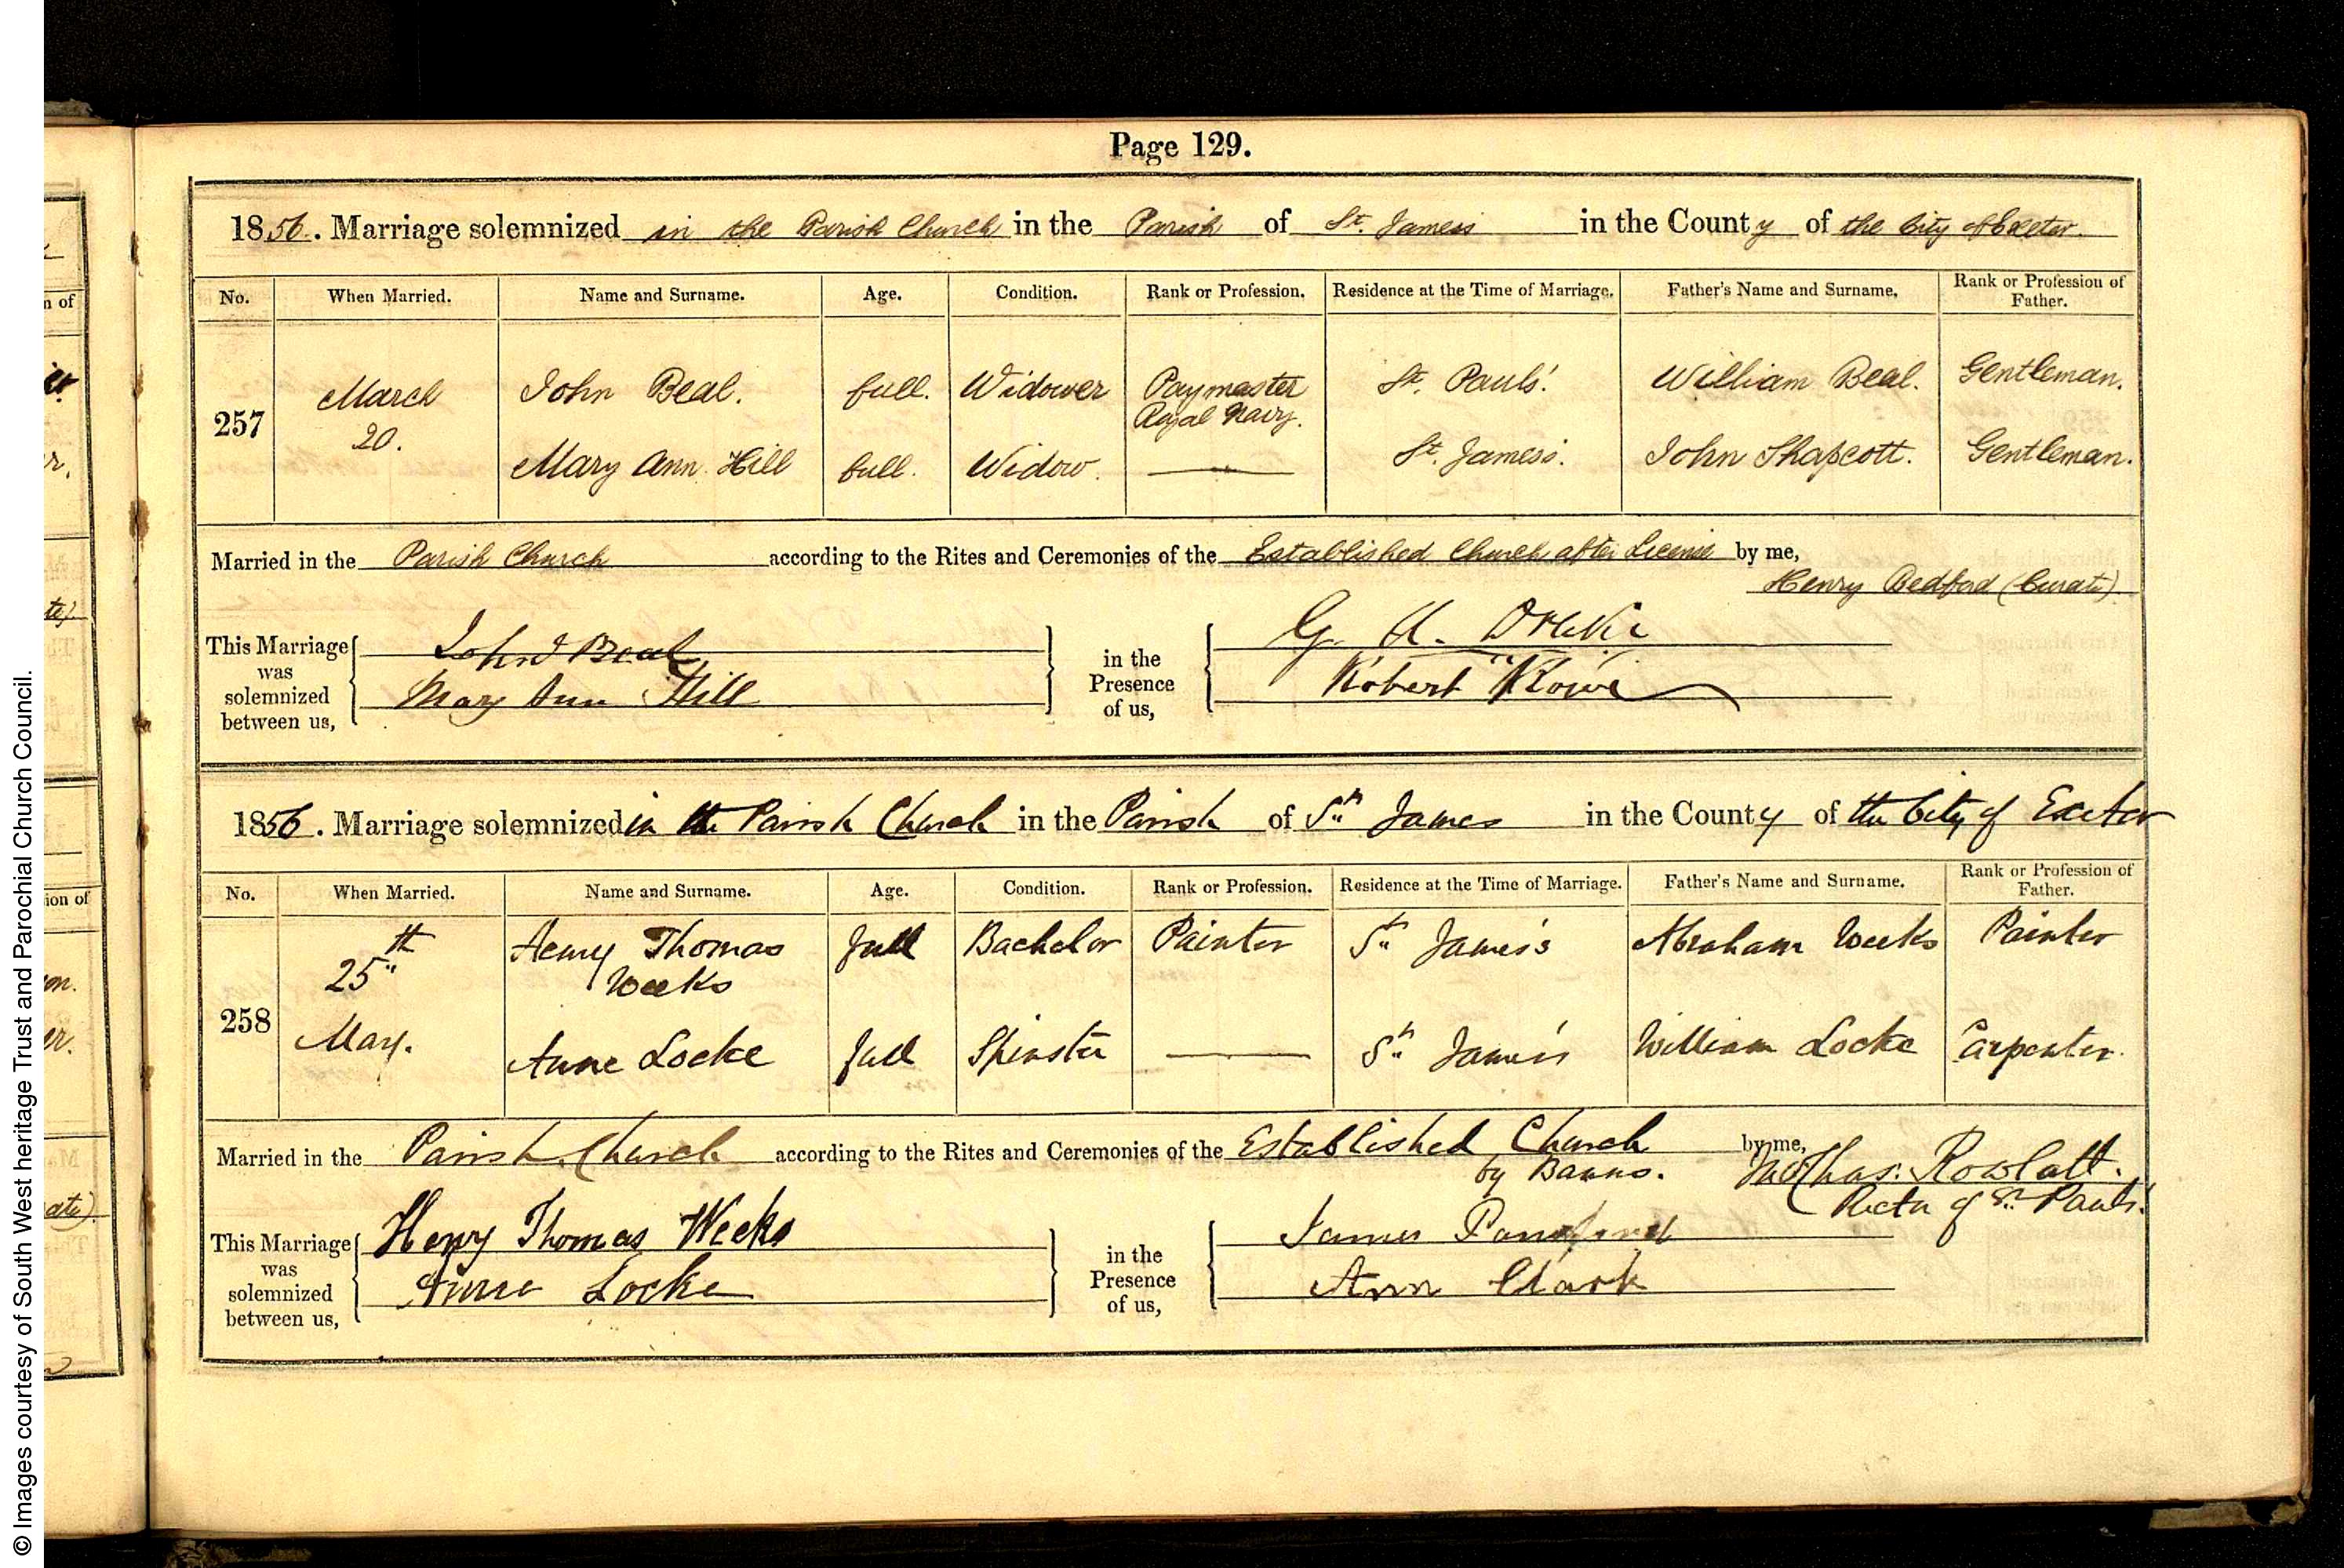 Page 129.
1856. Marriage solemnized in the Parish Church in the Parish of St. James's in the County of the City of Exeter.
No. When Married. Name and Surname. Age. Condition. Rank or Profession. Residence at the Time of Marriage. Father's Name and Surname. Rank or Profession of Father.
257 March 20. John Beal. full. Widower Paymaster Royal Navy. St. Pauls'. William Beal. Gentleman.
Mary Ann Hill full. Widow. St. James's. John Shapcott. Gentleman.
Married in the Parish Church according to the Rites and Ceremonies of the Established Church after License by me,
Henry Bedford (Curate).
This Marriage was solemnized between us, John Beal in the Presence of us, G. H.
Mary Ann Hill Robert Rowe
1856. Marriage solemnized in the Parish Church in the Parish of St. James in the County of the City of Exeter
No. When Married. Name and Surname. Age. Condition. Rank or Profession. Residence at the Time of Marriage. Father's Name and Surname. Rank or Profession of Father.
258 25th May. Henry Thomas Weeks full Bachelor Painter St. James's Abraham Weeks Painter
Anne Locke full Spinster St. James's William Locke Carpenter.
Married in the Parish Church according to the Rites and Ceremonies of the Established Church by me,
by Banns. Rowlatt.
Rector of St. Pauls'.
This Marriage was solemnized between us, Henry Thomas Weeks in the Presence of us, James
Anne Locke Ann Clark
© Images courtesy of South West heritage Trust and Parochial Church Council.